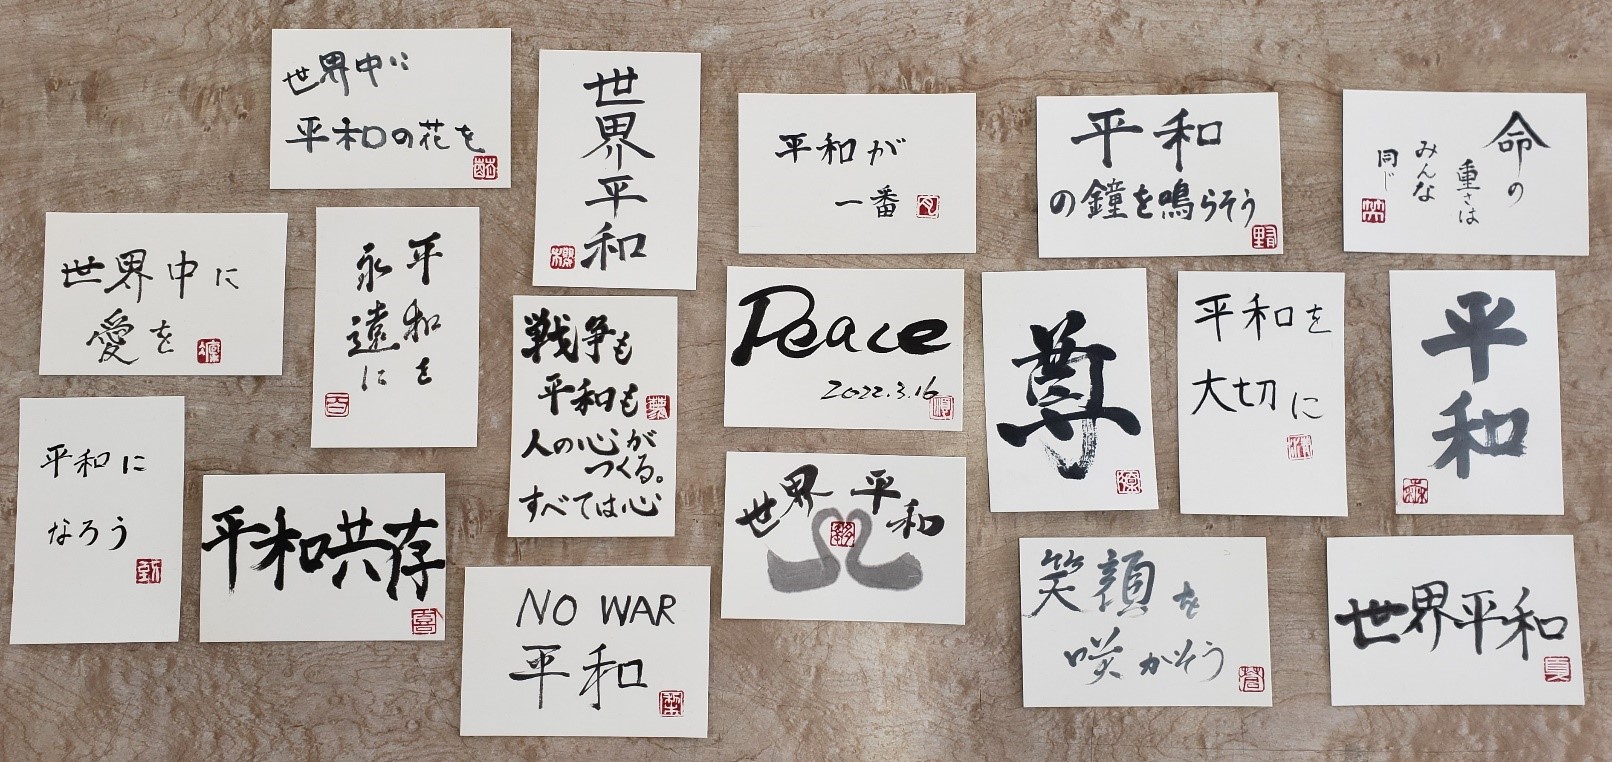 世界中に
平和の花を
世界平和
平和が
一番
平和
の鐘を鳴らそう
命の
重さは
みんな
同じ
世界中に
愛を
平和を
永遠に
戦争も
平和も
人の心が
つくる。
すべては心
Peace
2022.3.16
尊
平和を
大切に
平和
平和に
なろう
平和共存
NO WAR
平和
世界平和
笑顔を
咲かそう
世界平和